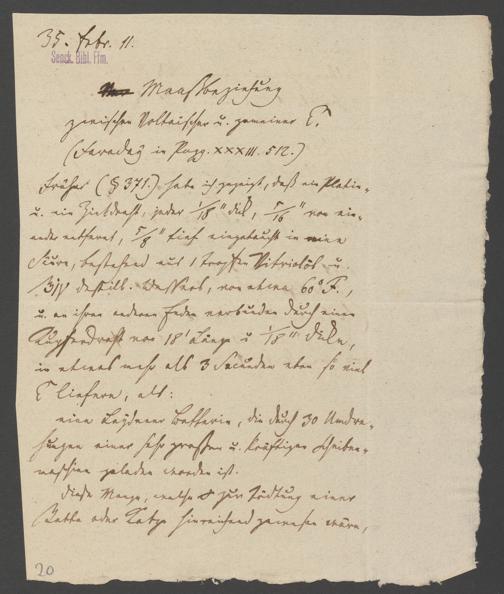 35. Febr. 11.
Senck. Bibl. Ffm.
Maaßbeziehung
zwischen Voltaischer u. gemeiner E.
(Faraday in Pogg. XXXIII. 512.)
Früher (§ 371.) habe ich gezeigt, daß ein Platin-
u. ein Zinkdraht, jeder 1/18" dick, 5/16" von ein-
ander entfernt, 5/8" tief eingetaucht in eine
Säure, bestehend aus 1 Tropfen Vitriolöl u.
destill. Wassers, von etwa 60° F.,
u. an ihren anderen Enden verbunden durch einen
Kupferdraht von 18' Länge u. 1/18" Dicke,
in etwas mehr als 3 Secunden eben so viel
E liefern, als:
eine Leydener Batterie, die durch 30 Umdre-
hungen einer sehr großen u. kräftigen Scheiben-
maschine geladen worden ist.
Diese Menge, welche zur Tödtung einer
Ratte oder Katze hinreichend gewesen wäre,
20